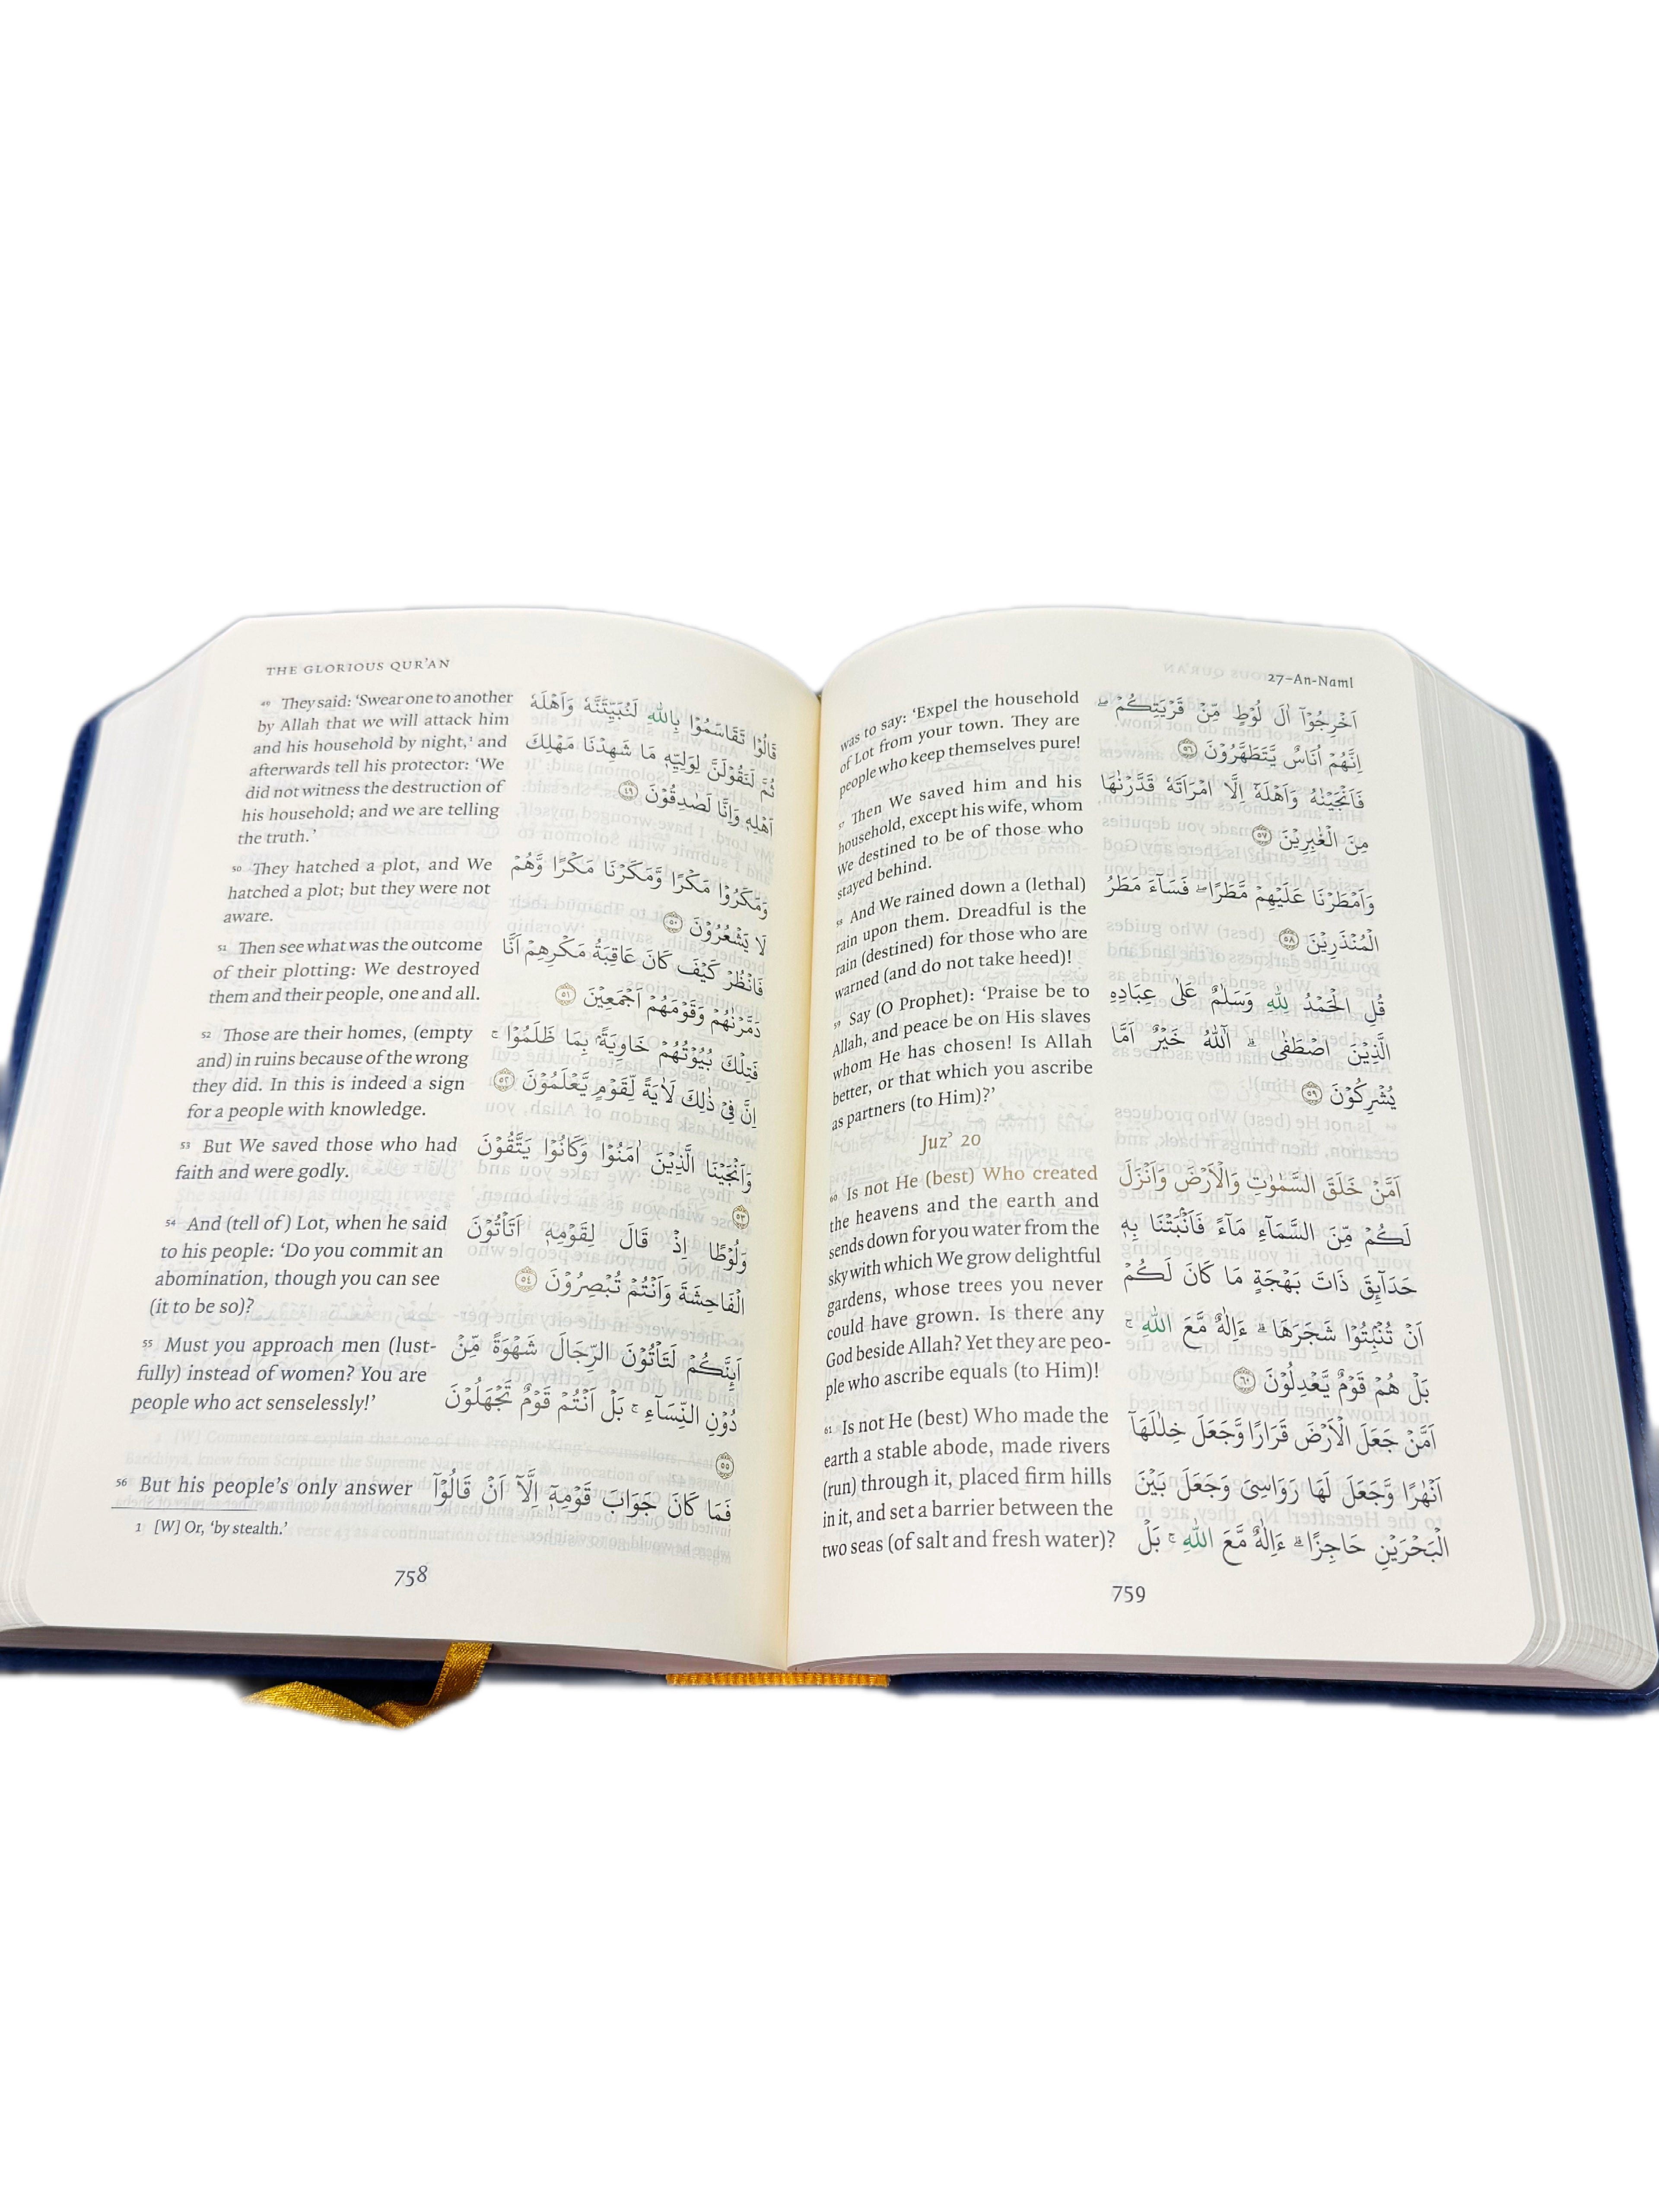 THE GLORIOUS QUR'AN
49 They said: ‘Swear one to another
by Allah that we will attack him
and his household by night,¹ and
afterwards tell his protector: ‘We
did not witness the destruction of
his household; and we are telling
the truth.’
50 They hatched a plot, and We
hatched a plot; but they were not
aware.
51 Then see what was the outcome
of their plotting: We destroyed
them and their people, one and all.
52 Those are their homes, (empty
and) in ruins because of the wrong
they did. In this is indeed a sign
for a people with knowledge.
53 But We saved those who had
faith and were godly.
54 And (tell of) Lot, when he said
to his people: ‘Do you commit an
abomination, though you can see
(it to be so)?
55 Must you approach men (lust-
fully) instead of women? You are
people who act senselessly!’
56 But his people’s only answer
قَالُوْا تَقَاسَمُوْا بِاللّٰهِ لَنُبَيِّتَنَّهٗ وَاَهْلَهٗ
ثُمَّ لَنَقُوْلَنَّ لِوَلِيِّهٖ مَا شَهِدْنَا مَهْلِكَ
اَهْلِهٖ وَاِنَّا لَصٰدِقُوْنَ ٤٩
وَمَكَرُوْا مَكْرًا وَّمَكَرْنَا مَكْرًا وَّهُمْ
لَا يَشْعُرُوْنَ ٥٠
فَانْظُرْ كَيْفَ كَانَ عَاقِبَةُ مَكْرِهِمْ اَنَّا
دَمَّرْنٰهُمْ وَقَوْمَهُمْ اَجْمَعِيْنَ ٥١
فَتِلْكَ بُيُوْتُهُمْ خَاوِيَةً ۢ بِمَا ظَلَمُوْا ۚ
اِنَّ فِيْ ذٰلِكَ لَاٰيَةً لِّقَوْمٍ يَّعْلَمُوْنَ ٥٢
وَاَنْجَيْنَا الَّذِيْنَ اٰمَنُوْا وَكَانُوْا يَتَّقُوْنَ
٥٣
وَلُوْطًا اِذْ قَالَ لِقَوْمِهٖ اَتَاْتُوْنَ
الْفَاحِشَةَ وَاَنْتُمْ تُبْصِرُوْنَ ٥٤
اَىِٕنَّكُمْ لَتَاْتُوْنَ الرِّجَالَ شَهْوَةً مِّنْ
دُوْنِ النِّسَآءِ ۚ بَلْ اَنْتُمْ قَوْمٌ تَجْهَلُوْنَ
٥٥
فَمَا كَانَ جَوَابَ قَوْمِهٖٓ اِلَّآ اَنْ قَالُوْٓا
1 [W] Or, ‘by stealth.’
758
27–An-Naml
was to say: ‘Expel the household
of Lot from your town. They are
people who keep themselves pure!
57 Then We saved him and his
household, except his wife, whom
We destined to be of those who
stayed behind.
58 And We rained down a (lethal)
rain upon them. Dreadful is the
rain (destined) for those who are
warned (and do not take heed)!
59 Say (O Prophet): ‘Praise be to
Allah, and peace be on His slaves
whom He has chosen! Is Allah
better, or that which you ascribe
as partners (to Him)?’
Juz’ 20
60 Is not He (best) Who created
the heavens and the earth and
sends down for you water from the
sky with which We grow delightful
gardens, whose trees you never
could have grown. Is there any
God beside Allah? Yet they are peo-
ple who ascribe equals (to Him)!
61 Is not He (best) Who made the
earth a stable abode, made rivers
(run) through it, placed firm hills
in it, and set a barrier between the
two seas (of salt and fresh water)?
اَخْرِجُوْٓا اٰلَ لُوْطٍ مِّنْ قَرْيَتِكُمْ ۖ
اِنَّهُمْ اُنَاسٌ يَّتَطَهَّرُوْنَ ٥٦
فَاَنْجَيْنٰهُ وَاَهْلَهٗٓ اِلَّا امْرَاَتَهٗ قَدَّرْنٰهَا
مِنَ الْغٰبِرِيْنَ ٥٧
وَاَمْطَرْنَا عَلَيْهِمْ مَّطَرًا ۖ فَسَآءَ مَطَرُ
الْمُنْذَرِيْنَ ٥٨
قُلِ الْحَمْدُ لِلّٰهِ وَسَلٰمٌ عَلٰى عِبَادِهِ
الَّذِيْنَ اصْطَفٰى ۗ آٰللّٰهُ خَيْرٌ اَمَّا
يُشْرِكُوْنَ ٥٩
اَمَّنْ خَلَقَ السَّمٰوٰتِ وَالْاَرْضَ وَاَنْزَلَ
لَكُمْ مِّنَ السَّمَآءِ مَآءً فَاَنْۢبَتْنَا بِهٖ
حَدَآىِٕقَ ذَاتَ بَهْجَةٍ مَا كَانَ لَكُمْ
اَنْ تُنْۢبِتُوْا شَجَرَهَا ۗ ءَاِلٰهٌ مَّعَ اللّٰهِ ۚ
بَلْ هُمْ قَوْمٌ يَّعْدِلُوْنَ ٦٠
اَمَّنْ جَعَلَ الْاَرْضَ قَرَارًا وَّجَعَلَ خِلٰلَهَآ
اَنْهٰرًا وَّجَعَلَ لَهَا رَوَاسِىَ وَجَعَلَ بَيْنَ
الْبَحْرَيْنِ حَاجِزًا ۗ ءَاِلٰهٌ مَّعَ اللّٰهِ ۚ بَلْ
759